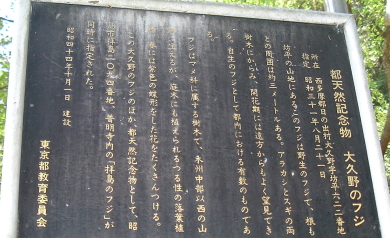 都天然記念物 大久野のフジ
所在 西多摩郡日の出村大久野字坊平六二二番地
指定 昭和三十一年八月二十一日
坊平の山地にあるこのフジは野生のフジで、根も
との周囲は約三メートルある。アラカシとスギの両
樹木にからみ、開花期には遠方からもよく望見でき
る。自生のフジとして都内における有数のものであ
る。
フジはマメ科に属する樹木で、本州中部以西の山
地に生えるが、庭木にも植えられるつる性の落葉植
物。春には紫色の蝶形をした花をたくさんつける。
この大久野のフジのほか、都天然記念物として、昭
島市拝島二〇九二番地、普明寺内の「拝島のフジ」が
同時に指定された。
昭和四十四年十月一日 建設
東京都教育委員会